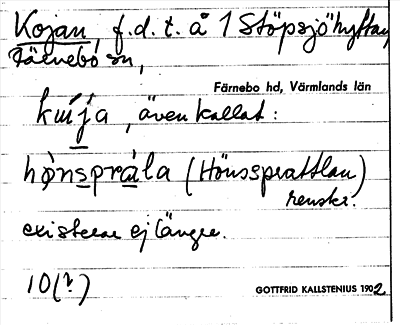 Kojan, f.d. t. å 1 Stöpsjöhyttan,
Färnebo sn,
Färnebo hd, Värmlands län
kuja, även kallat:
hònsprála (Hönssprattlan)
renskr.
existerar ej längre.
10(?)
GOTTFRID KALLSTENIUS 1902